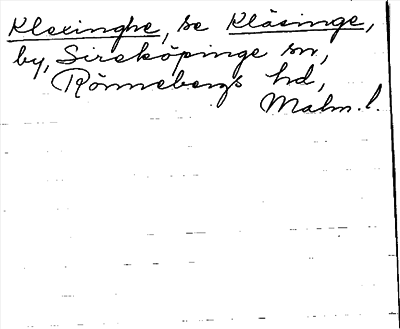 Klexinghe, se Kläsinge,
by, Sireköpinge sn,
Rönnebergs hd,
Malm. l.